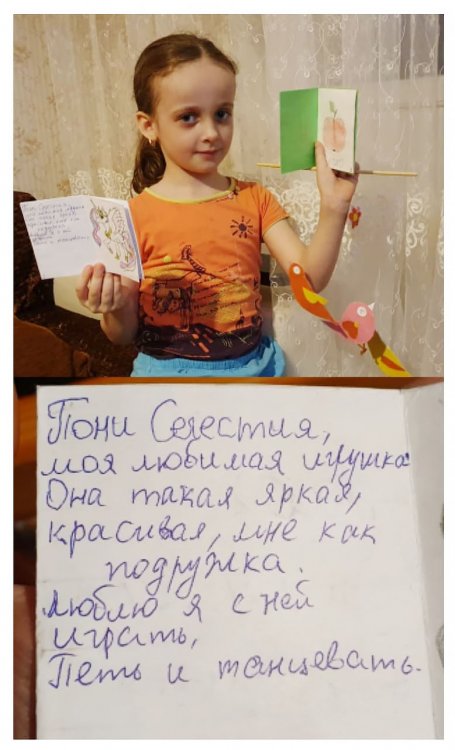 Пони Селестия,
моя любимая игрушка
Она такая яркая,
красивая, мне как
подружка.
Люблю я с ней
играть,
Петь и танцевать.